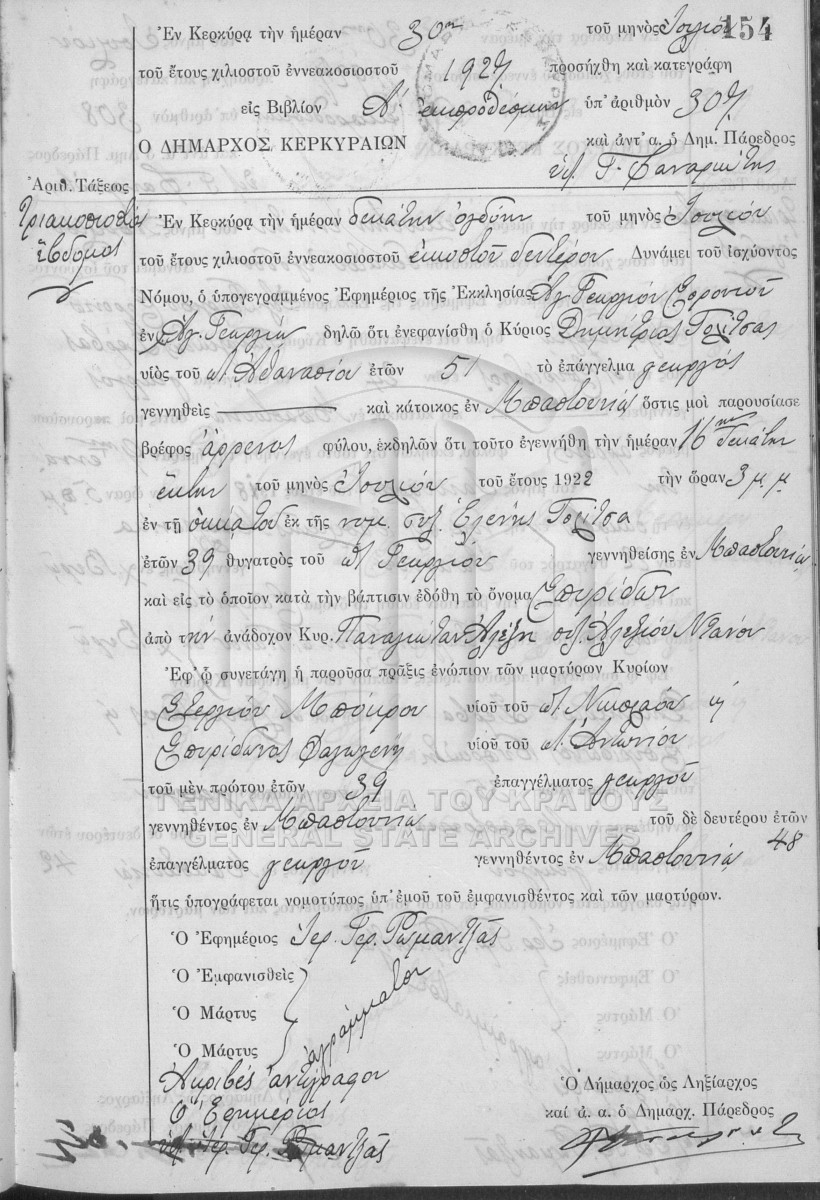 154
Ἐν Κερκύρᾳ τὴν ἡμέραν 30ην τοῦ μηνὸς Ἰουλίου
τοῦ ἔτους χιλιοστοῦ ἐννεακοσιοστοῦ 1927 προσήχθη καὶ κατεγράφη
εἰς Βιβλίον Α' ἐκπροθέσμων ὑπ' ἀριθμὸν 307
Ο ΔΗΜΑΡΧΟΣ ΚΕΡΚΥΡΑΙΩΝ καὶ ἀντ' α. ὁ Δημ. Πάρεδρος
ὑπ. Γ.
Ἀριθ. Τάξεως
Τριακοσιοστὸς
ἕβδομος
Ἐν Κερκύρᾳ τὴν ἡμέραν δεκάτην ὀγδόην τοῦ μηνὸς Ἰουλίου
τοῦ ἔτους χιλιοστοῦ ἐννεακοσιοστοῦ εἰκοστοῦ δευτέρου Δυνάμει τοῦ ἰσχύοντος
Νόμου, ὁ ὑπογεγραμμένος Ἐφημέριος τῆς Ἐκκλησίας Ἁγ. Γεωργίου
ἐν δηλῶ ὅτι ἐνεφανίσθη ὁ Κύριος Δημήτριος Γολίτσας
υἱὸς τοῦ Ἀθανασίου ἐτῶν 51 τὸ ἐπάγγελμα γεωργὸς
γεννηθεὶς καὶ κάτοικος ἐν Μπαστουνίᾳ ὅστις μοὶ παρουσίασε
βρέφος ἄρρενος φύλου, ἐκδηλῶν ὅτι τοῦτο ἐγεννήθη τὴν ἡμέραν 16ην δεκάτην
ἕκτην τοῦ μηνὸς Ἰουλίου τοῦ ἔτους 1922 τὴν ὥραν 3 μ.μ.
ἐν τῇ οἰκίᾳ του ἐκ τῆς νομ. συζ. Ἑλένης Γολίτσα
ἐτῶν 39 θυγατρὸς τοῦ Γεωργίου γεννηθείσης ἐν Μπαστουνίᾳ
καὶ εἰς τὸ ὁποῖον κατὰ τὴν βάπτισιν ἐδόθη τὸ ὄνομα Σπυρίδων
ἀπὸ τὴν ἀνάδοχον Κυρ. Παναγιώταν συζ. Ἀλεξίου
Ἐφ' ᾧ συνετάγη ἡ παροῦσα πρᾶξις ἐνώπιον τῶν μαρτύρων Κυρίων
Στεργίου Μπούκρου υἱοῦ τοῦ Νικολάου
Σπυρίδωνος υἱοῦ τοῦ Ἀντωνίου
τοῦ μὲν πρώτου ἐτῶν 39 ἐπαγγέλματος γεωργοῦ
γεννηθέντος ἐν Μπαστουνίᾳ τοῦ δὲ δευτέρου ἐτῶν
48
ἐπαγγέλματος γεωργοῦ γεννηθέντος ἐν Μπαστουνίᾳ
ἥτις ὑπογράφεται νομοτύπως ὑπ' ἐμοῦ τοῦ ἐμφανισθέντος καὶ τῶν μαρτύρων.
Ὁ Ἐφημέριος Ἱερ. Γερ. Ρωμαντζᾶς
Ὁ Ἐμφανισθεὶς
Ὁ Μάρτυς ἀγράμματοι
Ὁ Μάρτυς
Ἀκριβὲς ἀντίγραφον
Ὁ Ἐφημέριος
ὑπ. Ἱερ. Γερ. Ρωμαντζᾶς
Ὁ Δήμαρχος ὡς Ληξίαρχος
καὶ ἀ. α. ὁ Δημαρχ. Πάρεδρος
ΓΕΝΙΚΑ ΑΡΧΕΙΑ ΤΟΥ ΚΡΑΤΟΥΣ
GENERAL STATE ARCHIVES